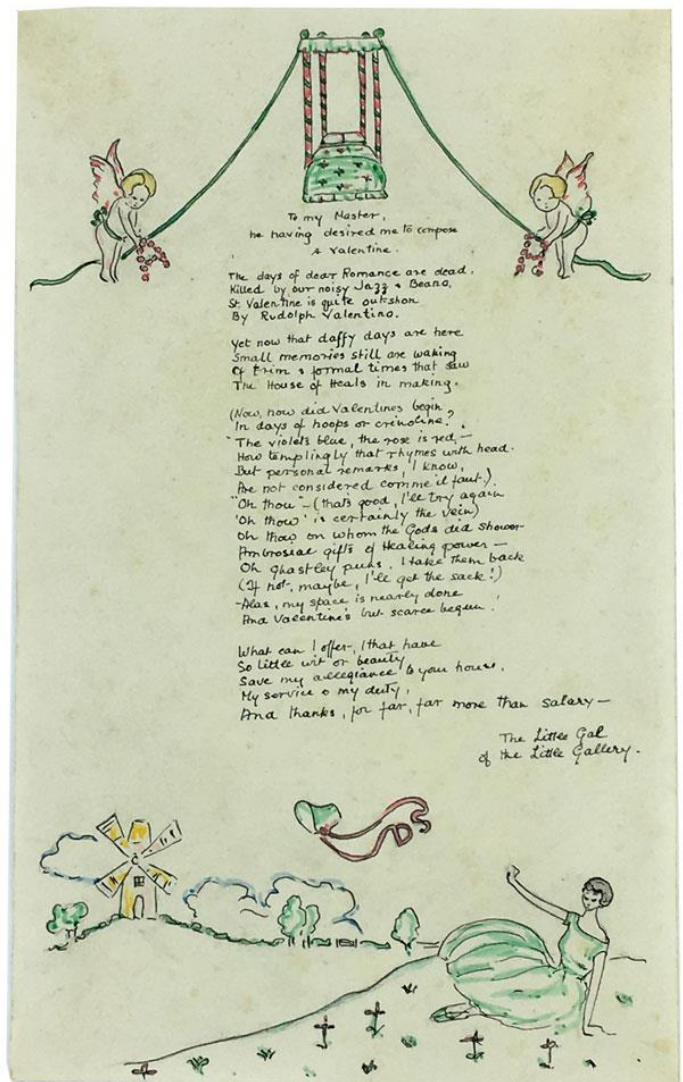 To my Master,
he having desired me to compose
A Valentine.
The days of dear Romance are dead,
Killed by our noisy Jazz & Beano,
St. Valentine is quite outshon
By Rudolph Valentino.
Yet now that daffy days are here
Small memories still are waking
Of trim & formal times that saw
The House of Heals in making.
(Now, how did Valentines begin
In days of hoops or crinoline?
"The violet's blue, the rose is red,—
How temptingly that rhymes with head.
But personal remarks, I know,
Are not considered comme il faut.)
"Oh thou"—(that's good, I'll try again
'Oh thou' is certainly the vein)
Oh thou on whom the Gods did shower
Ambrosial gifts of Healing power —
Oh ghastley puns, I take them back
(If not, maybe, I'll get the sack!)
-Alas, my space is nearly done
And Valentine's but scarce begun!
What can I offer, I that have
So little wit or beauty
Save my allegiance to your house,
My service & my duty,
And thanks, for far, far more than salary —
The Little Gal
of the Little Gallery.
DS